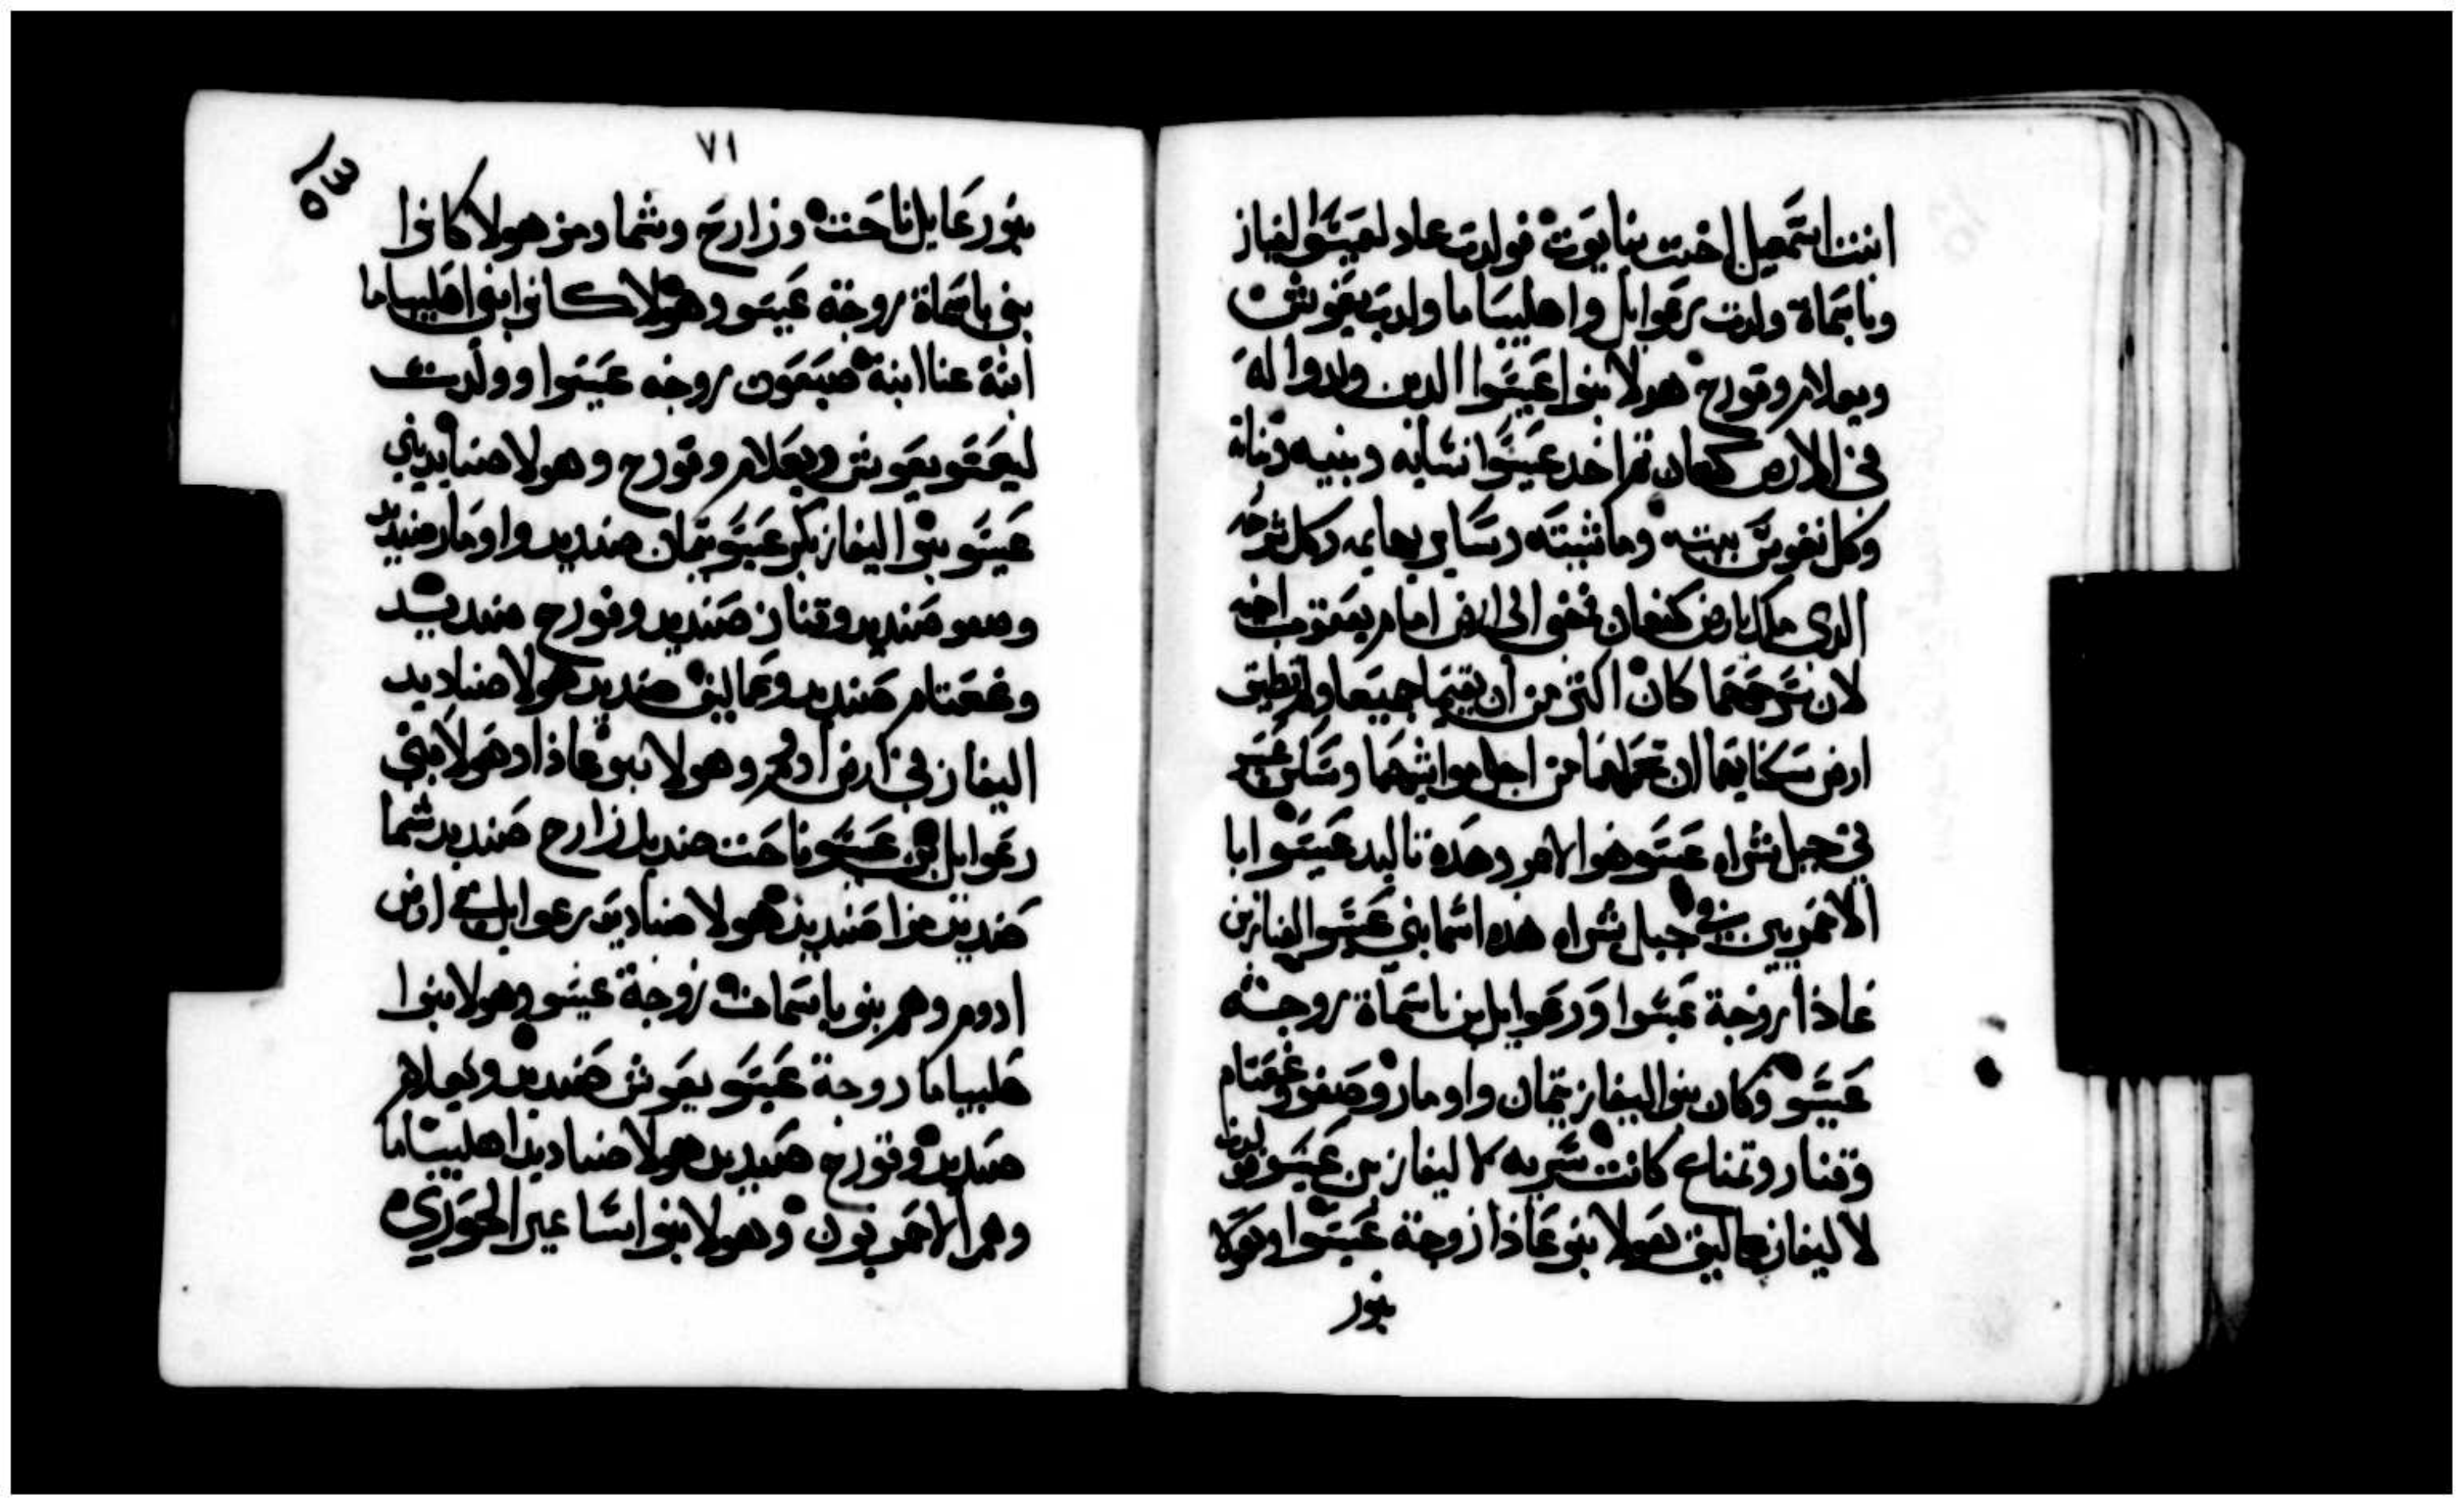 ابنت اسمعيل اخت نبايوت فولدت عاد لعيسوا ليفاز
وباسماة ولدت رعوايل واهليباما ولدت يعوش
ويعلام وقورح هولا بنوا عيسوا الدين ولدوا له
في الارض كنعان ثم اخد عيسوا نسايه وبنيه وبناة
وكل نفوس بيته وماشيته وساير بهايمه وكل
الدي ملك بارض كنعان فمضى الى ارض امام يعقوب اخيه
لان سرحهما كان اكثر من ان يقيما جميعا ولم تطيق
ارض سكناهما ان تحملهما من اجل مواشيهما وسكن عيسو
في جبل شراه عيسو هوا الاحمر وهده تاليد عيسوا ابا
الاحمريين في جبل شراه هده اسما بني عيسوا ليفاز بن
عاذا زوجة عيسوا ورعوايل بن باسماة زوجته
عيسو وكان بنوا ليفاز تيمان واومار وصفو وغعتام
وقناز وتمناع كانت سريه لاليفاز بن عيسو فولدت
لاليفاز عماليق هولا بنو عاذا زوجة عيسوا وهولا
بنور
٧١
بنور عايل ناحت وزارح وشما ومزا هولا كانوا
بني باسماة زوجة عيسو وهولا كانوا بنوا اهليباما
ابنة عنا ابنة صبعون زوجه عيسوا وولدت
ليعسو يعوش ويعلام وقورح وهولا صناديد بني
عيسو بنوا اليفاز بكر عيسو تيمان صنديد واومار صنديد
وصفو صنديد وقناز صنديد وقورح صنديد
وغعتام صنديد وعماليق صنديد هولا صناديد
اليفاز في ارض ادوم وهولا بنو عاذا وهولا بني
رعوايل بن عيسو ناحت صنديد زارح صنديد شما
صنديد مزا صنديد هولا صناديد رعوايل في ارض
ادوم وهم بنو باسمات زوجة عيسو وهولا بنوا
هليباما زوجة عيسو يعوش صنديد ويعلام
صنديد وقورح صنديد هولا صناديد اهليباما
وهم الاحمريون وهولا بنوا ساعير الحوري